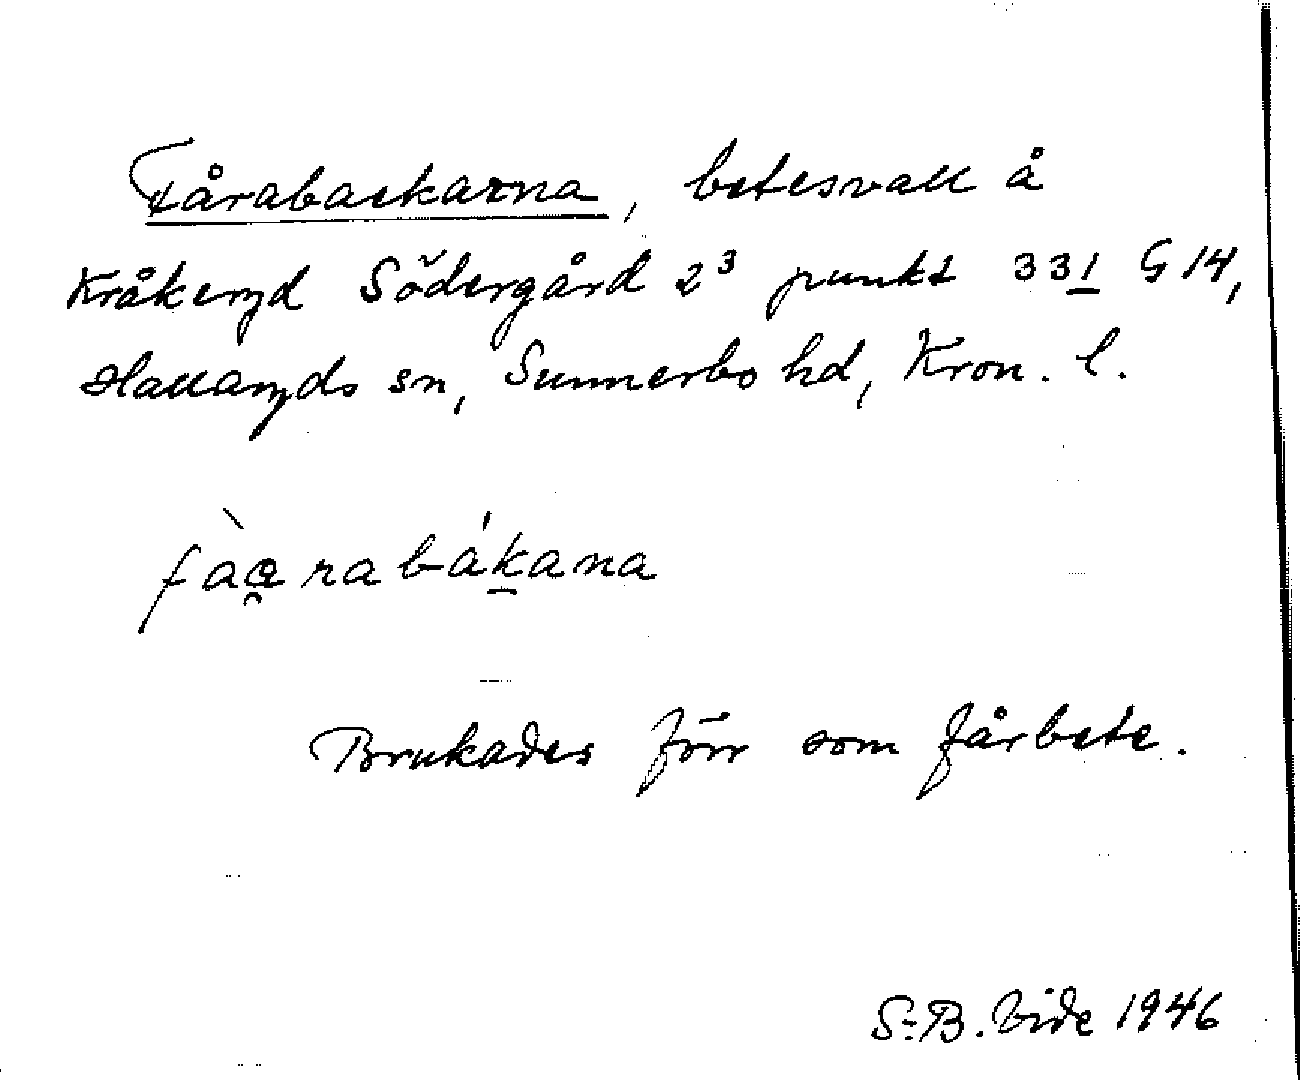 Fårabackarna, betesvall å
Kråkeryd Södergård 2³ punkt 331 G 14,
Hallaryds sn, Sunnerbo hd, Kron. l.
fàa̯rabákana
Brukades förr som fårbete.
S-B. Vide 1946